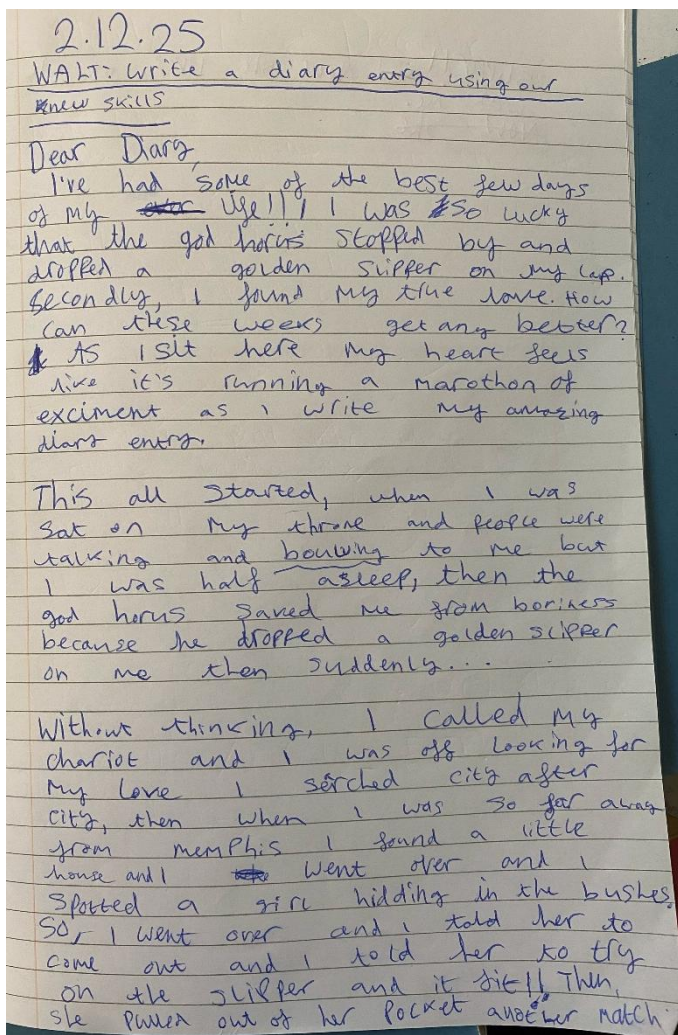 2.12.25
WALT: Write a diary entry using our
new skills
Dear Diary,
I've had some of the best few days
of my life!!! I was so lucky
that the god horus stopped by and
dropped a golden slipper on my lap.
Secondly, I found my true love. How
can these weeks get any better?
As I sit here my heart feels
like it's running a marothon of
exciment as i write my amazing
diary entry.
This all started, when I was
sat on my throne and people were
talking and bouwing to me but
I was half asleep, then the
god horus saved me from boriness
because he dropped a golden slipper
on me then suddenly...
Without thinking, I called my
chariot and I was off looking for
my love I serched city after
city, then when I was so far away
from memphis I found a little
house and I went over and I
spotted a girl hidding in the bushes.
So, I went over and i told her to
come out and I told her to try
on the slipper and it fit!! Then,
she pulled out of her pocket another match